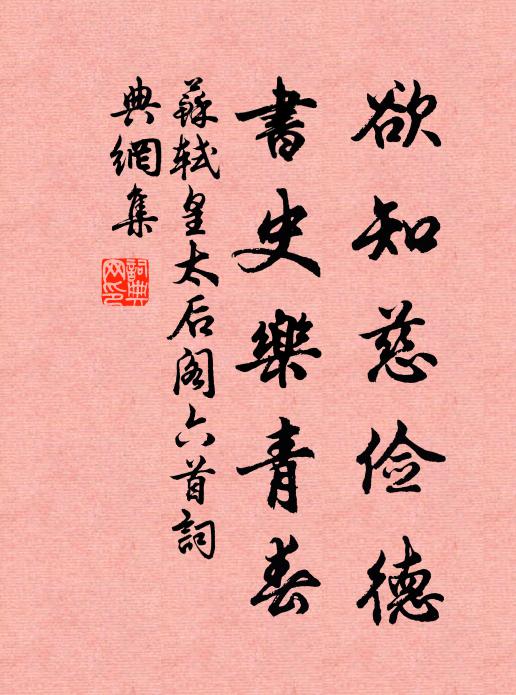 欲知慈俭德
書史樂青春
蘇軾皇太后阁六首詞
典網集
詞典网印